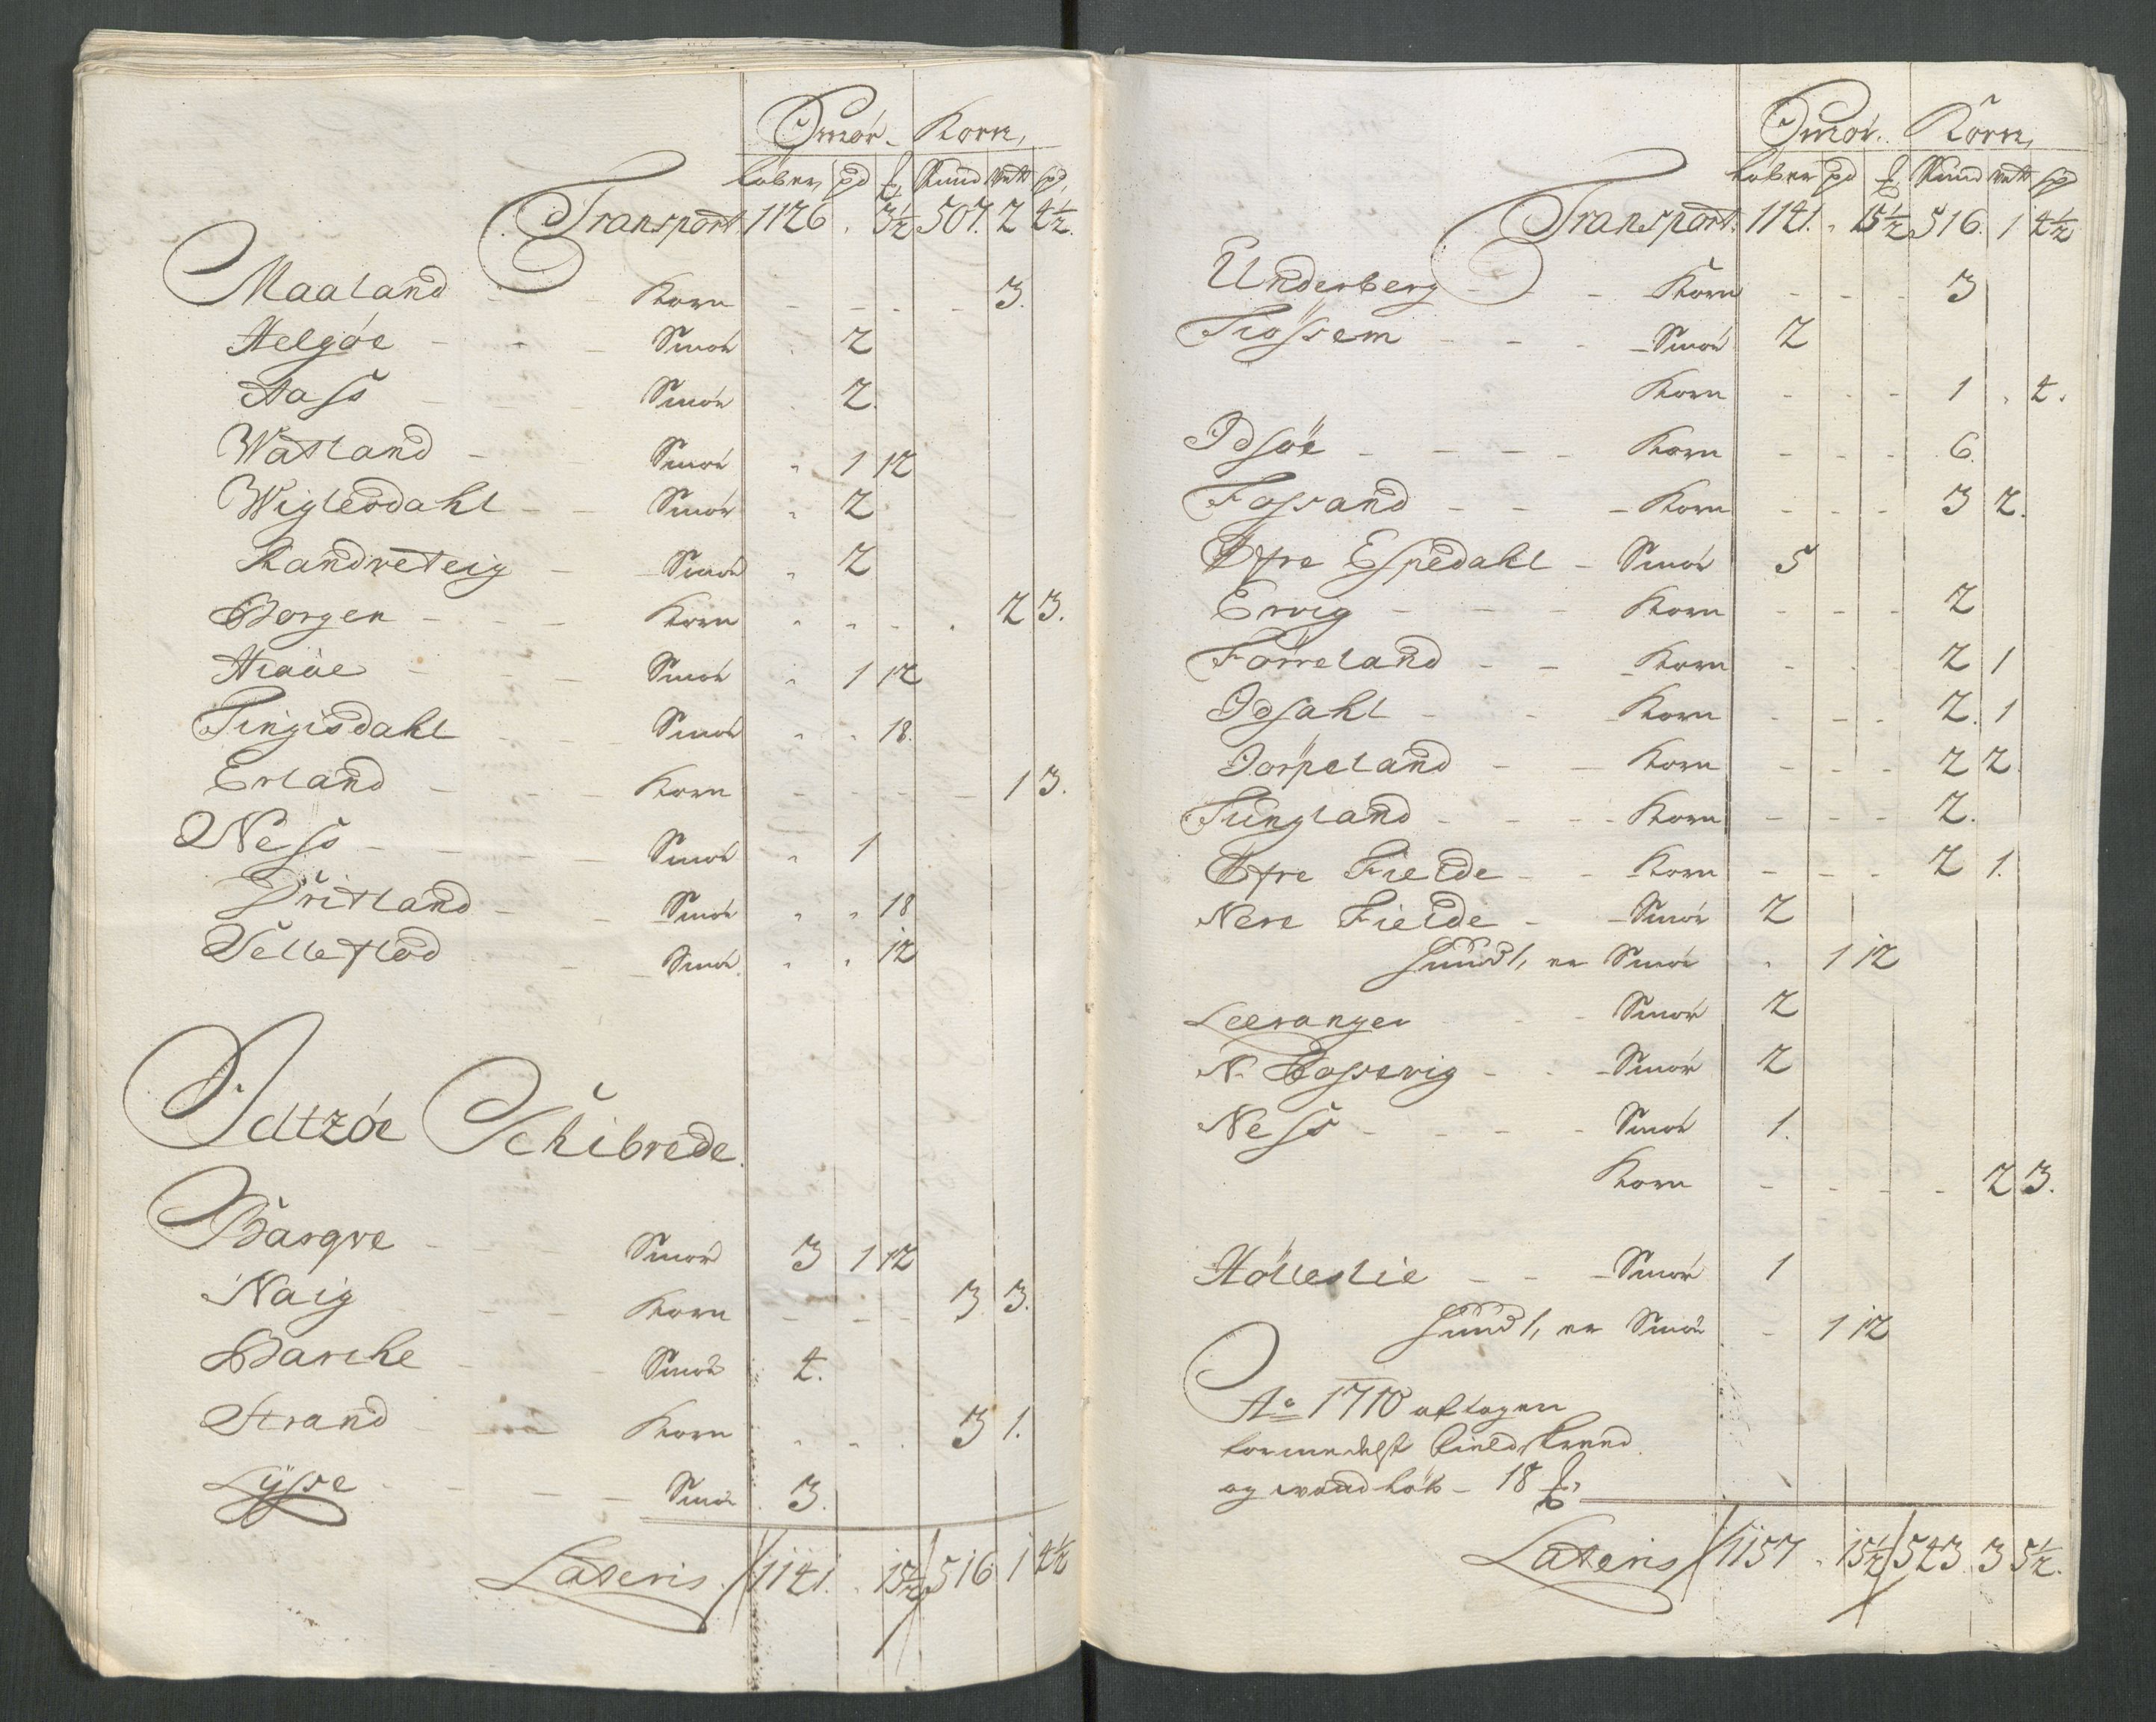 Smør. Korn,
Løber, pd ℔, Pund Vett spd,
Transport 1126 . 3½ 507. 2 4½.
Maaland - - Korn - - - - 3.
Helgøe - - - Smør . 2
Aass - - - Smør . 2.
Watland - Smør " 1 12
Wiglesdahl - - Smør " 2
Randveteig - Smør " 2
Borgen - - - Korn " " - . 2 3.
Hiaae - - - Smør " 1 12
Tingisdahl - - - Smør " " 18.
Erland - - - Korn - - - - - 1 3.
Ness - - - - Smør " 1
Dritland - - Smør " " 18
Telleflød - - Smør. " " 12
Idtzöe Schibrede.
Bargve - - - Smør 3 1 12
Naig - - Korn - - - 3 3.
Barche - - Smør 4.
Strand - Korn " " . 3 1.
Lÿsse - - - - Smør . 3.
Lateris. 1141. . 15½ 516 1 4½
Smør. Korn,
Løber pd ℔ Pund Vett spd
Transport. 1141. " 15½ 516. 1 4½
Underberg - - - Korn - - - 3
Tiössem - - - Smør 2
Korn - - - 1 . 4.
Idsöe - - - - Korn - - - 6.
Fossand - - - Korn - - - 3 2.
Øfre Espedahl - Smør 5
Ervig - - - Korn - - - 2
Förreland - - Korn - - - 2 1
Idsahl - - Korn - - - 2. 1
Jörpeland - - Korn - - - 2 2.
Tungland - - - - Korn - - - 2.
Øfre Fielde - - Korn - - - 2 1.
Nere Fielde - - Smør 2
er Smør . 1 12
Leeranger - - Smør 2
N. Bossevig - - - Smør 2
Ness - - - - Smør 1.
Korn - - - - 2 3.
Hölleslie - - - Smør 1
er Smør - 1 12
Ao 1710 aftagen
formedelst Field skreed
og vand - 18 ℔,
Lateris 1157 . 15½ 543 3 5½.